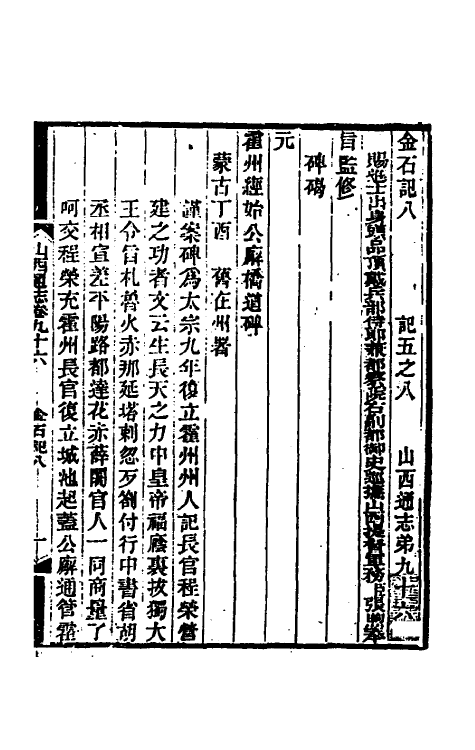 金石記八　記五之八　山西通志弟九十六
賜進士出身頭品頂戴兵部侍郎兼都察院右副都御史巡撫山西提督軍務 張煦奉
旨監修
碑碣
元
霍州經始公廨橋道碑
蒙古丁酉　舊在州署
謹案碑爲太宗九年復立霍州州人記長官程榮營
建之功者文云生長天之力中皇帝福廕裏拔獨大
王令旨札魯火赤那延塔剌忽歹劄付行中書省胡
丞相宣差平陽路都達花赤薛闍官人一同商量了
呵交程榮充霍州長官復立城池起蓋公廨通管霍
山西通志卷九十六　金石記八　一